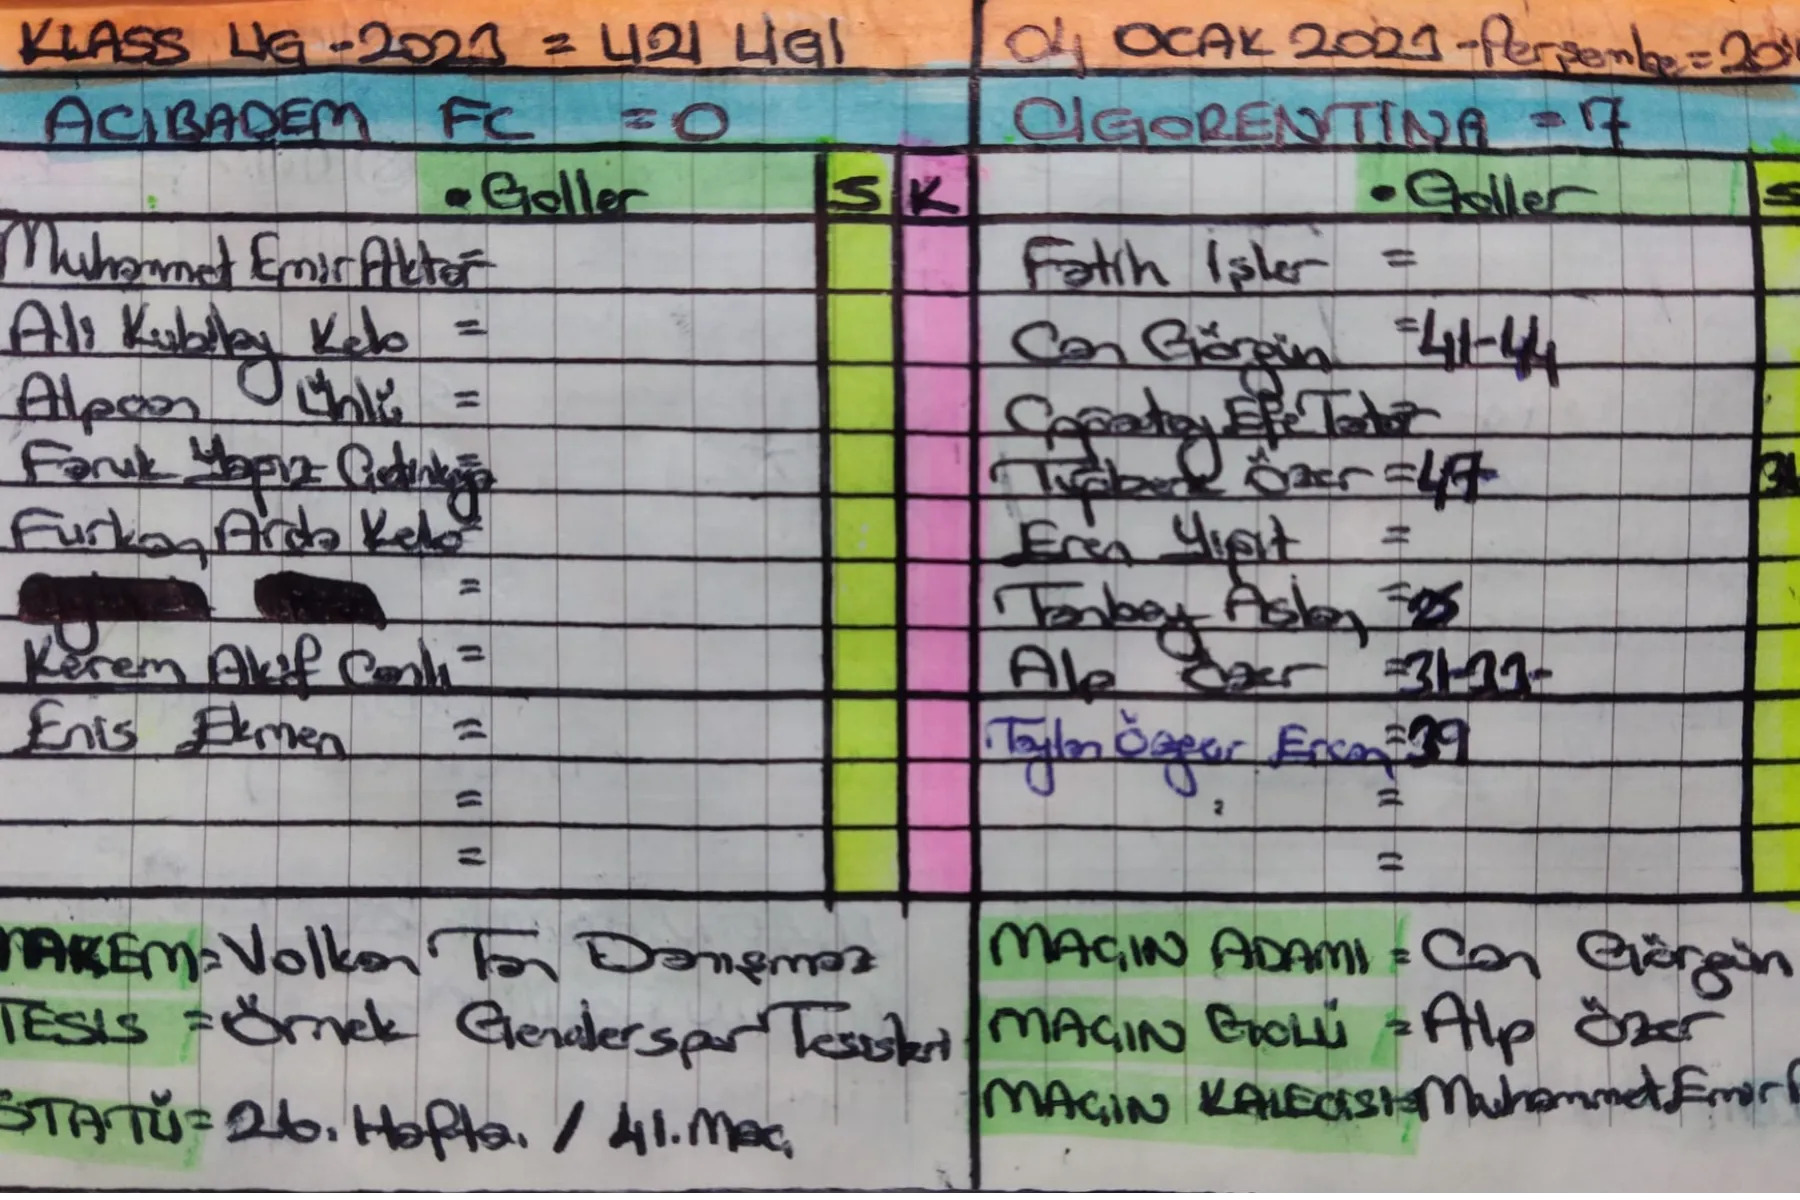 KLASS LİG - 2023 = U21 LİGİ
04 OCAK 2023 - Perşembe = 20
ACIBADEM FC = 0
CİGORENTINA = 7
• Goller S K
• Goller S
Muhammet Emir Aktaş =
Ali Kubilay Kelo =
Alpcan Ünlü =
Faruk Yağız Çetinkaya =
Furkan Arda Kelo =
=
Kerem Akif Canlı =
Enis Ekmen =
=
=
Fatih İşler =
Can Görgün = 41-44
Çağatay Efe Tatar
Tuğberk Özer = 47-
Eren Yiğit =
Tanbay Aslan =
Alp Özer = 31-33-
Taylan Özgür Ercan = 39
=
=
HAKEM = Volkan Tan Danışmaz
TESİS = Örnek Gençlerspor Tesisleri
STATÜ = 26. Hafta. / 41. Maç
MAÇIN ADAMI = Can Görgün
MAÇIN GOLÜ = Alp Özer
MAÇIN KALECİSİ = Muhammet Emir